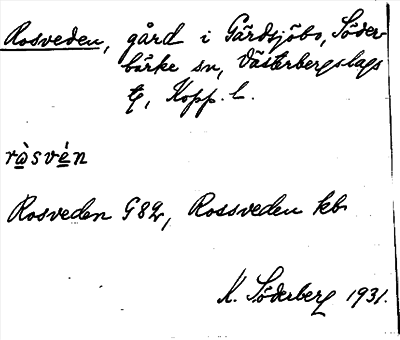 Rosveden, gård i Gärdsjöbo, Söder-
bärke sn, Västerbergslags
tg, Kopp. l.
ròsvén
Rosveden G 82, Rossveden kb
K. Söderberg 1931.